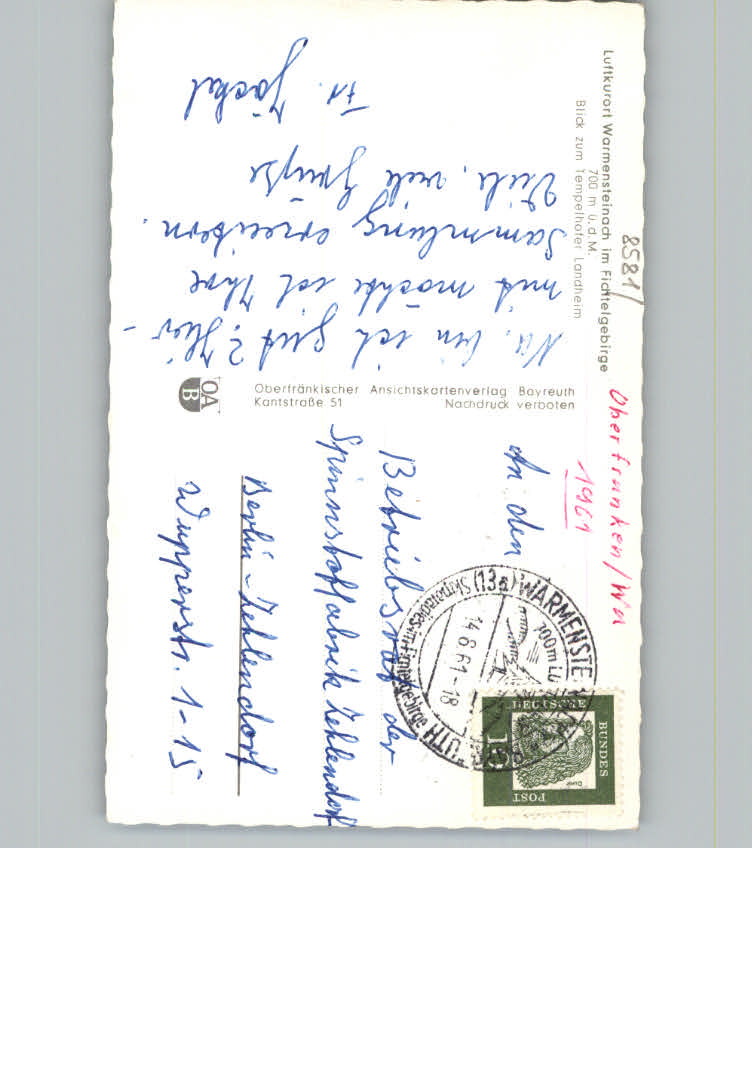 Luftkurort Warmensteinach im Fichtelgebirge
700 m ü.d.M.
Blick zum Tempelhofer Landheim
8581/
Oberfranken/Wa
1961
Na, bin ich gut? Hier-
mit möchte ich Ihre
Sammlung erweitern.
Viele, viele Grüße
Fr. Jäckel
Oberfränkischer Ansichtskartenverlag Bayreuth
Kantstraße 51 Nachdruck verboten
OA
B
(13a) WARMENSTE
700m
14.8.61-18
DEUTSCHE
BUNDES
POST
10
Dürer
An den
Betriebsrat der
Spinnstoffabrik Zehlendorf
Berlin-Zehlendorf
Wupperstr. 1-15